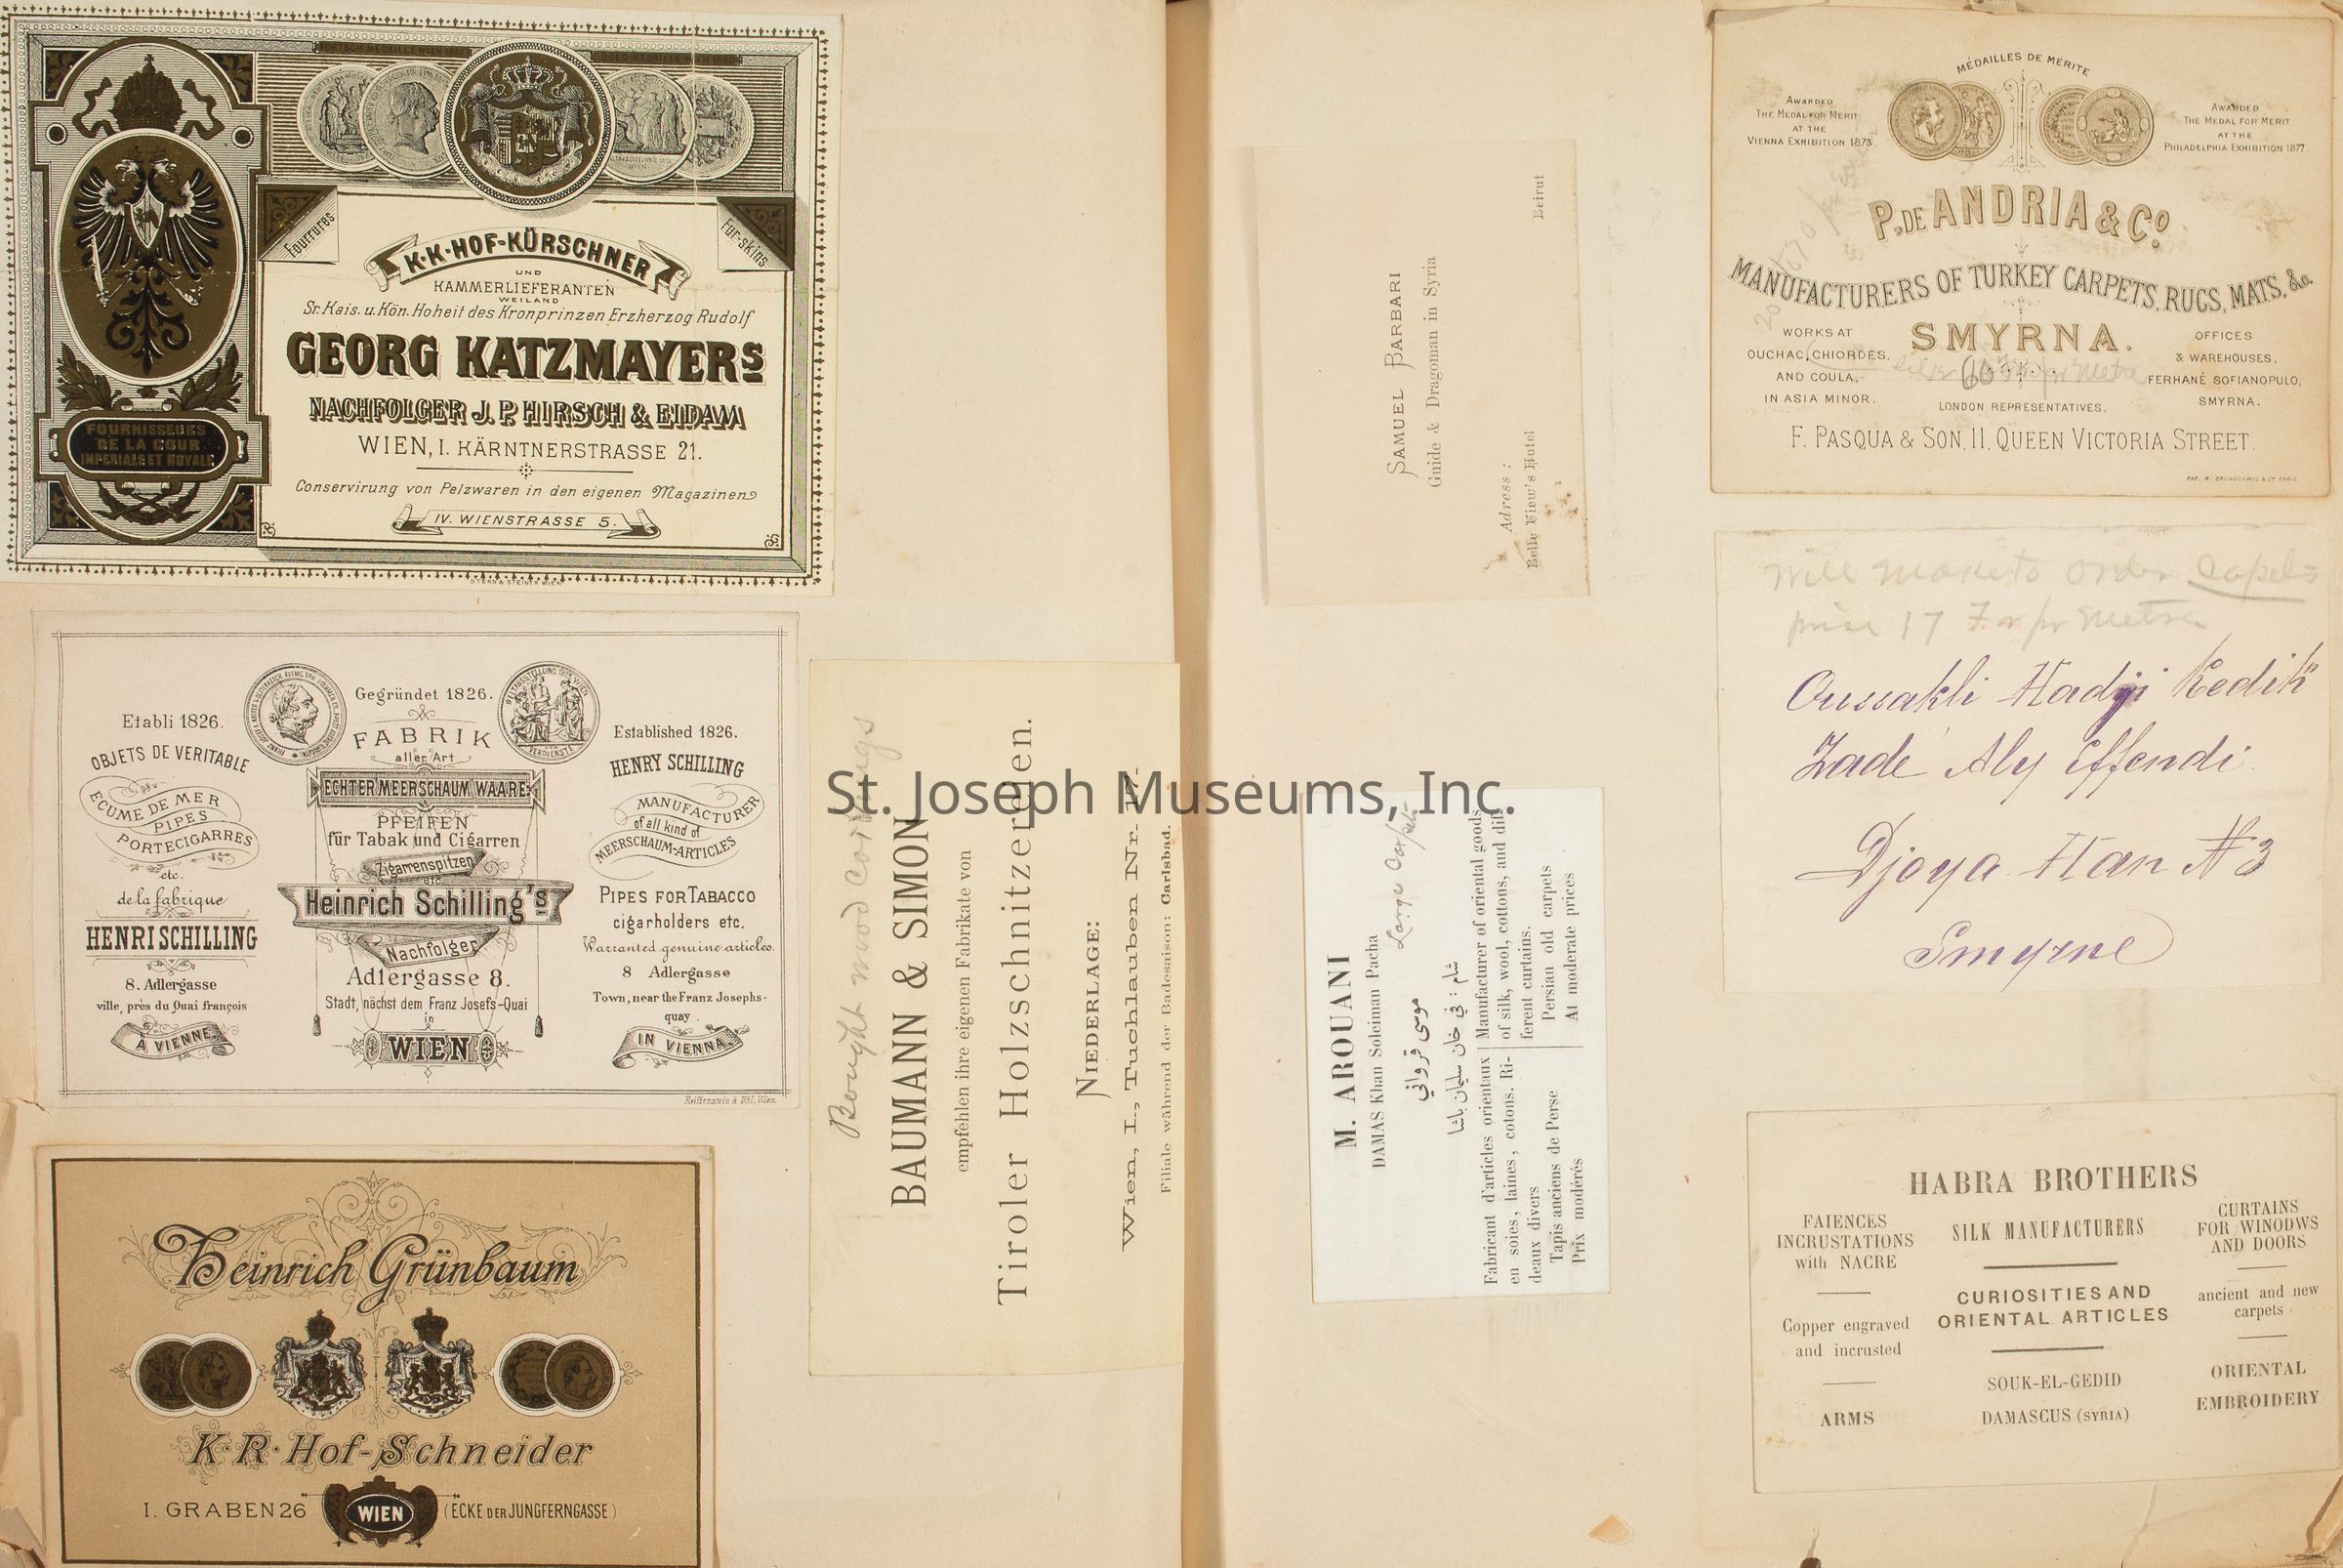 Fourrures
Fur-skins
K·K·HOF-KÜRSCHNER
UND
KAMMERLIEFERANTEN
WEILAND
Sr. Kais. u. Kön. Hoheit des Kronprinzen Erzherzog Rudolf
GEORG KATZMAYERS
NACHFOLGER J. P. HIRSCH & EIDAM
WIEN, I. KÄRNTNERSTRASSE 21.
Conservirung von Pelzwaren in den eigenen Magazinen
IV. WIENSTRASSE 5.
FOURNISSEURS
DE LA COUR
IMPERIALE ET ROYALE
STERN & STEINER WIEN
Etabli 1826.
OBJETS DE VERITABLE
ECUME DE MER
PIPES
PORTECIGARRES
etc.
de la fabrique
HENRI SCHILLING
8. Adlergasse
ville, près du Quai françois
À VIENNE.
Gegründet 1826.
FABRIK
aller Art
ECHTER MEERSCHAUM WAARE
PFEIFEN
für Tabak und Cigarren
Zigarrenspitzen
etc.
Heinrich Schilling's
Nachfolger
Adlergasse 8.
Stadt, nächst dem Franz Josefs-Quai
in
WIEN
Established 1826.
HENRY SCHILLING
MANUFACTURER
of all kind of
MEERSCHAUM-ARTICLES
PIPES FOR TABACCO
cigarholders etc.
Warranted genuine articles.
8 Adlergasse
Town, near the Franz Josephs-
quay
IN VIENNA.
Reiffenstein & Uhl, Wien.
Heinrich Grünbaum
K·K· Hof-Schneider
I. GRABEN 26
WIEN
(ECKE DER JUNGFERNGASSE)
Bought wood carvings
BAUMANN & SIMON
empfehlen ihre eigenen Fabrikate von
Tiroler Holzschnitzereien.
NIEDERLAGE:
Wien, I., Tuchlauben Nr. 17.
Filiale während der Badesaison: Carlsbad.
St. Joseph Museums, Inc.
SAMUEL BARBARI
Guide & Dragoman in Syria
Adress:
Belle View's Hotel
Beirut
M. AROUANI
DAMAS Khan Soleiman Pacha
Large Carpets
موسى قرواني
شام : في خان سليمان باشا
Fabricant d'articles orientaux
en soies, laines, cotons. Ri-
deaux divers
Tapis anciens de Perse
Prix modérés
Manufacturer of oriental goods
of silk, wool, cottons, and dif-
ferent curtains.
Persian old carpets
At moderate prices
MÉDAILLES DE MÉRITE
AWARDED
THE MEDAL FOR MERIT
AT THE
VIENNA EXHIBITION 1873.
AWARDED
THE MEDAL FOR MERIT
AT THE
PHILADELPHIA EXHIBITION 1877.
P. DE ANDRIA & Co.
MANUFACTURERS OF TURKEY CARPETS, RUGS, MATS, &a.
SMYRNA.
WORKS AT
OUCHAC, CHIORDES,
AND COULA.
IN ASIA MINOR.
OFFICES
& WAREHOUSES,
FERHANÉ SOFIANOPULO,
SMYRNA.
LONDON REPRESENTATIVES,
F. PASQUA & SON, 11, QUEEN VICTORIA STREET.
will make to order Capets
price 17 Fr pr Metre
Oussakli Hadji Kedik
Zadé Aly Effendi
Djoya Han N 3
Smyrne
HABRA BROTHERS
FAIENCES
INCRUSTATIONS
with NACRE
Copper engraved
and incrusted
ARMS
SILK MANUFACTURERS
CURIOSITIES AND
ORIENTAL ARTICLES
SOUK-EL-GEDID
DAMASCUS (SYRIA)
CURTAINS
FOR WINODWS
AND DOORS
ancient and new
carpets
ORIENTAL
EMBROIDERY